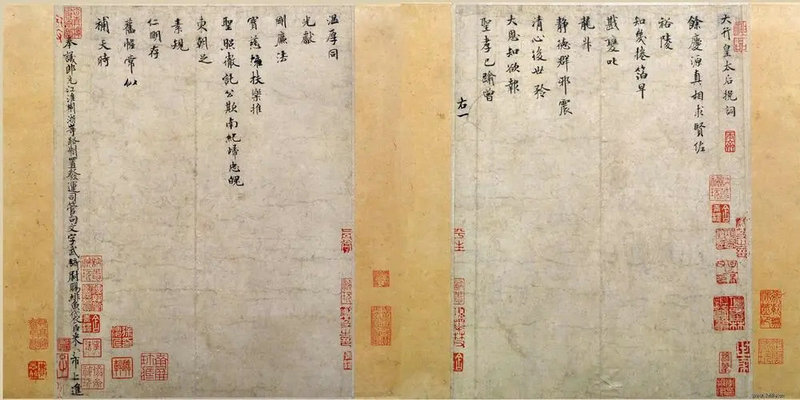 大行皇太后挽詞
餘慶源真相求賢佐
裕陵
知幾捲箔早
戡變叱
龍升
靜德群邪震
清心後世矜
大恩知欲報
聖孝已踰曾
右一
溫厚同
光獻
剛廉法
寶慈擁扶樂推
聖照徹託公欺南紀歸忠魄
東朝足
素規
仁明存
舊幄常似
補天時
奉議郎充江淮荊浙等路制置發運司管句文字武騎尉賜緋魚袋臣米芾上進